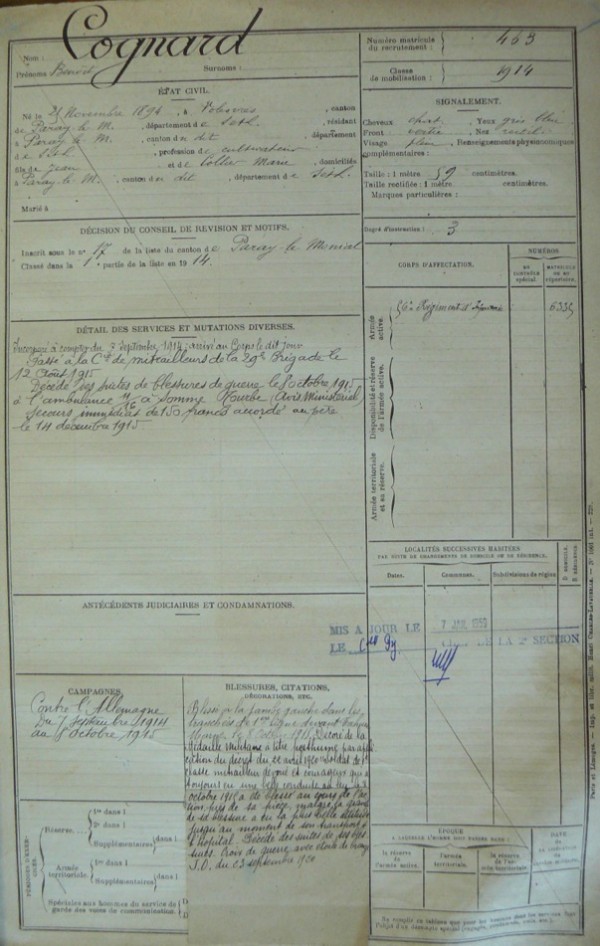 Cognard
Nom :
Prénoms Benoit Surnoms :
Numéro matricule
du recrutement : 463
Classe
de mobilisation : 1914
ÉTAT CIVIL.
Né le 21 Novembre 1894, à Volesvres, canton
de Paray-le-M., département de Seth., résidant
à Paray le M., canton du dit, département
de Seth., profession de cultivateur
fils de Jean et de Marie, domiciliés
à Paray le M., canton du dit, département de Seth.
Marié à
SIGNALEMENT.
Cheveux Yeux gris bleu
Front Nez
Visage plein Renseignements physionomiques
complémentaires :
Taille : 1 mètre 59 centimètres.
Taille rectifiée : 1 mètre centimètres.
Marques particulières :
Degré d'instruction : 3
DÉCISION DU CONSEIL DE REVISION ET MOTIFS.
Inscrit sous le n° 17 de la liste du canton de Paray-le-Monial
Classé dans la 1 partie de la liste en 1914.
CORPS D'AFFECTATION.
NUMÉROS
AU CONTRÔLE spécial.
MATRICULE OU AU répertoire.
Armée active.
56e Régiment d'Infanterie 6335
Disponibilité et réserve de l'armée active.
Armée territoriale et sa réserve.
DÉTAIL DES SERVICES ET MUTATIONS DIVERSES.
Incorporé à compter du 7 septembre 1914, arrivé au Corps le dit jour
Passé à la Cie de mitrailleurs de la 29e Brigade le
12 Août 1915
Décédé des suites de blessures de guerre le 8 octobre 1915
à l'ambulance à Somme Tourbe (Avis Ministériel)
Secours immédiat de 150 francs accordé au père
le 14 décembre 1915
LOCALITÉS SUCCESSIVES HABITÉES
PAR SUITE DE CHANGEMENTS DE DOMICILE OU DE RÉSIDENCE.
Dates. Communes. Subdivisions de région. D. DOMICILE. R. RÉSIDENCE.
ANTÉCÉDENTS JUDICIAIRES ET CONDAMNATIONS.
MIS A JOUR LE
LE DE LA 2e SECTION
CAMPAGNES.
Contre l'Allemagne
Du 7 Septembre 1914
au 8 octobre 1915
BLESSURES, CITATIONS,
DÉCORATIONS, ETC.
Blessé à la jambe gauche dans les
tranchées de 1ère ligne devant
le 8 octobre 1915. Décoré de la
Médaille militaire à titre posthume par appli
cation du décret du Soldat de 1e
classe mitrailleur dévoué et courageux qui a
toujours eu une belle conduite au feu. Le 8
octobre 1915 a été blessé au cours de l'ac
tion près de sa pièce, malgré la gravité
de sa blessure a eu la plus belle attitude
jusqu'au moment de son transport à
l'hopital. Décédé des suites de ses bles
sures. Croix de guerre avec étoile de
J.O. du 23 septembre 1920
PÉRIODES D'EXERCICES.
Réserve.
1re dans l
2e dans l
Supplémentaires dans l
Armée territoriale.
1re dans l
Supplémentaires dans l
Spéciales aux hommes du service de
garde des voies de communication.
ÉPOQUE
A LAQUELLE L'HOMME DOIT PASSER DANS :
la réserve de l'armée active.
l'armée territoriale.
la réserve de l'armée territoriale.
DATE
de la libération du service militaire.